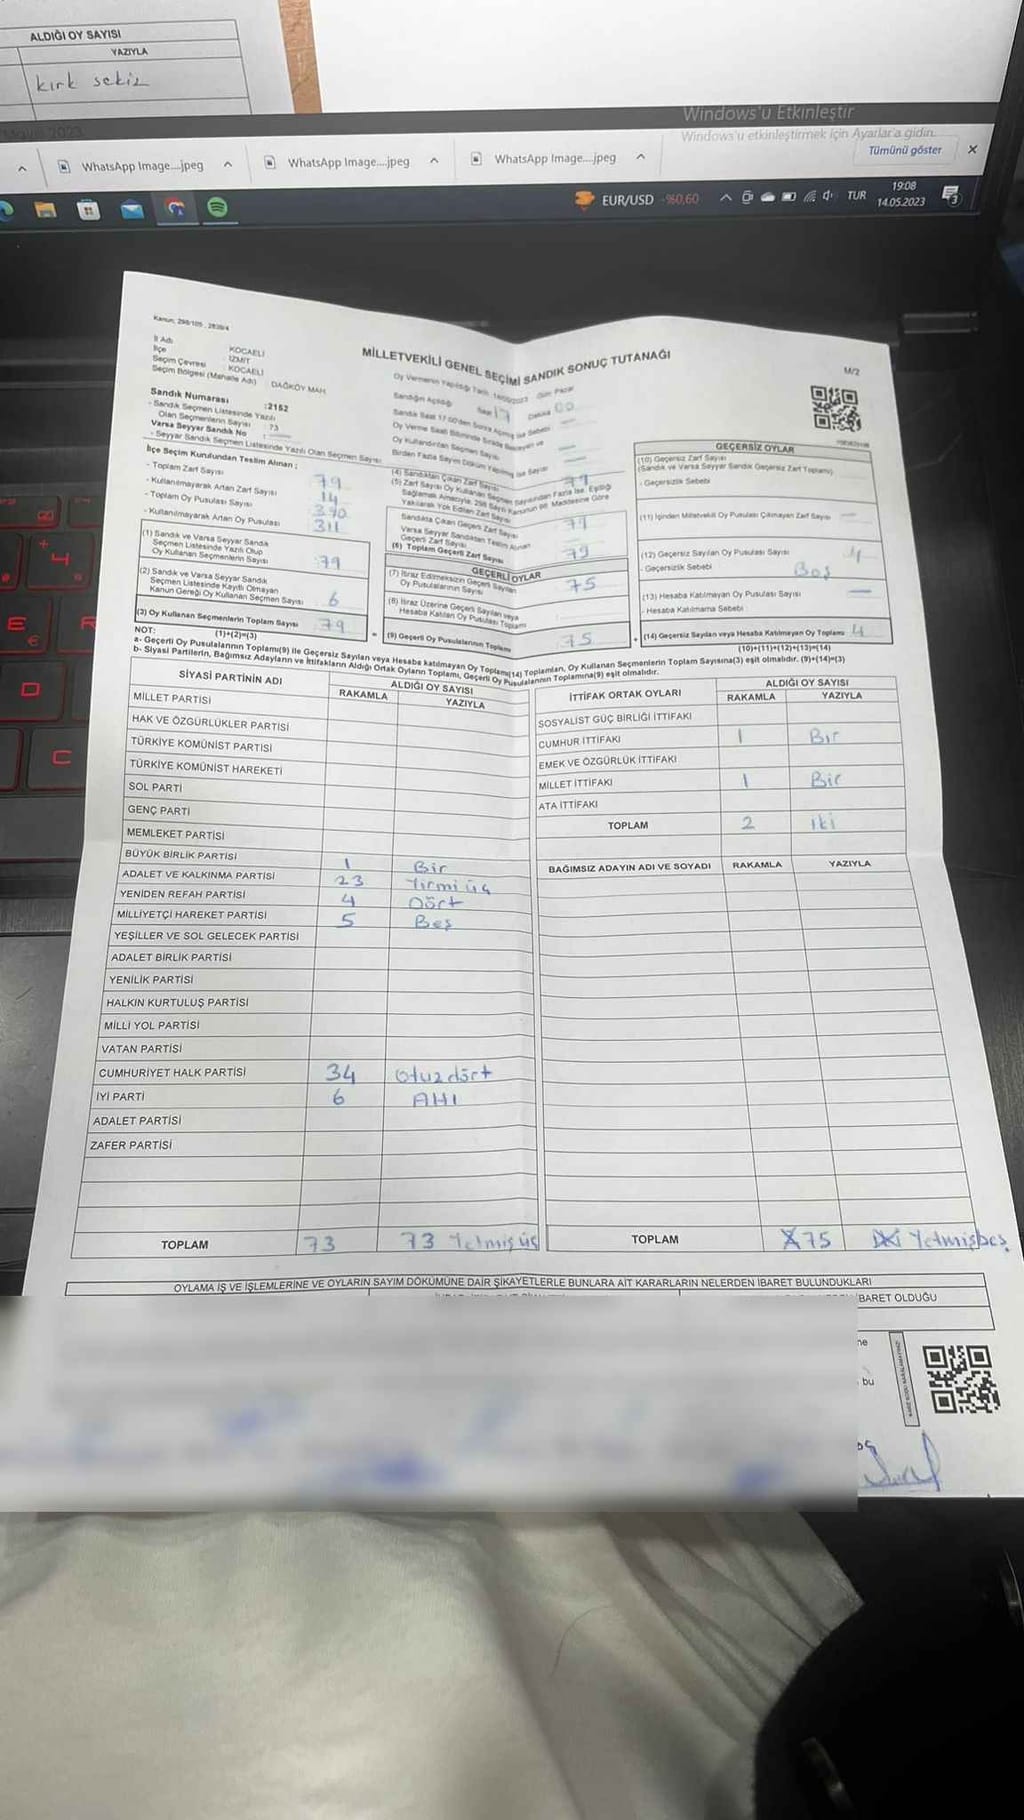 ALDIĞI OY SAYISI
YAZIYLA
kırk sekiz
Windows'u Etkinleştir
Windows'u etkinleştirmek için Ayarlar'a gidin.
Tümünü göster
WhatsApp Image....jpeg
WhatsApp Image....jpeg
WhatsApp Image....jpeg
EUR/USD -%0,60
TUR
19:08
14.05.2023
3
Kanun: 298/105 , 2839/4
İl Adı KOCAELİ
İlçe İZMİT
Seçim Çevresi KOCAELİ
Seçim Bölgesi (Mahalle Adı) DAĞKÖY MAH.
MİLLETVEKİLİ GENEL SEÇİMİ SANDIK SONUÇ TUTANAĞI
M/2
Sandık Numarası :2152
- Sandık Seçmen Listesinde Yazılı
Olan Seçmenlerin Sayısı : 73
Varsa Seyyar Sandık No :
- Seyyar Sandık Seçmen Listesinde Yazılı Olan Seçmen Sayısı
Oy Vermenin Yapıldığı Tarih 14/05/2023 Gün Pazar
Sandığın Açıldığı Saat 17 Dakika 00
İlçe Seçim Kurulundan Teslim Alınan :
- Toplam Zarf Sayısı
- Kullanılmayarak Artan Zarf Sayısı 14
- Toplam Oy Pusulası Sayısı 390
- Kullanılmayarak Artan Oy Pusulası 311
(1) Sandık ve Varsa Seyyar Sandık
Seçmen Listesinde Yazılı Olup
Oy Kullanan Seçmenlerin Sayısı 79
(2) Sandık ve Varsa Seyyar Sandık
Seçmen Listesinde Kayıtlı Olmayan
Kanun Gereği Oy Kullanan Seçmen Sayısı 6
(3) Oy Kullanan Seçmenlerin Toplam Sayısı 79
(1)+(2)=(3)
(4) Sandıktan Çıkan Zarf Sayısı
Sandıkta Çıkan Geçerli Zarf Sayısı
Varsa Seyyar Sandıktan Teslim Alınan
Geçerli Zarf Sayısı
(6) Toplam Geçerli Zarf Sayısı 79
GEÇERLİ OYLAR
(7) İtiraz Edilmeksizin Geçerli Sayılan
Oy Pusulalarının Sayısı 75
(8) İtiraz Üzerine Geçerli Sayılan veya
Hesaba Katılan Oy Pusulası Toplamı
(9) Geçerli Oy Pusulalarının Toplamı 75
GEÇERSİZ OYLAR
(10) Geçersiz Zarf Sayısı
(Sandık ve Varsa Seyyar Sandık Geçersiz Zarf Toplamı)
- Geçersizlik Sebebi
(11) İçinden Milletvekili Oy Pusulası Çıkmayan Zarf Sayısı
(12) Geçersiz Sayılan Oy Pusulası Sayısı 4
- Geçersizlik Sebebi Boş
(13) Hesaba Katılmayan Oy Pusulası Sayısı
- Hesaba Katılmama Sebebi
(14) Geçersiz Sayılan veya Hesaba Katılmayan Oy Toplamı 4
(10)+(11)+(12)+(13)=(14)
NOT:
a- Geçerli Oy Pusulalarının Toplamı(9) ile Geçersiz Sayılan veya Hesaba katılmayan Oy Toplamı(14) Toplamları, Oy Kullanan Seçmenlerin Toplam Sayısına(3) eşit olmalıdır. (9)+(14)=(3)
b- Siyasi Partilerin, Bağımsız Adayların ve İttifakların Aldığı Ortak Oyların Toplamı, Geçerli Oy Pusulalarının Toplamına(9) eşit olmalıdır.
SİYASİ PARTİNİN ADI
ALDIĞI OY SAYISI
RAKAMLA YAZIYLA
MİLLET PARTİSİ
HAK VE ÖZGÜRLÜKLER PARTİSİ
TÜRKİYE KOMÜNİST PARTİSİ
TÜRKİYE KOMÜNİST HAREKETİ
SOL PARTİ
GENÇ PARTİ
MEMLEKET PARTİSİ
BÜYÜK BİRLİK PARTİSİ 1 Bir
ADALET VE KALKINMA PARTİSİ 23 Yirmi üç
YENİDEN REFAH PARTİSİ 4 Dört
MİLLİYETÇİ HAREKET PARTİSİ 5 Beş
YEŞİLLER VE SOL GELECEK PARTİSİ
ADALET BİRLİK PARTİSİ
YENİLİK PARTİSİ
HALKIN KURTULUŞ PARTİSİ
MİLLİ YOL PARTİSİ
VATAN PARTİSİ
CUMHURİYET HALK PARTİSİ 34 Otuzdört
İYİ PARTİ 6 Altı
ADALET PARTİSİ
ZAFER PARTİSİ
TOPLAM 73 73 Yetmişüç
İTTİFAK ORTAK OYLARI
ALDIĞI OY SAYISI
RAKAMLA YAZIYLA
SOSYALİST GÜÇ BİRLİĞİ İTTİFAKI
CUMHUR İTTİFAKI 1 Bir
EMEK VE ÖZGÜRLÜK İTTİFAKI
MİLLET İTTİFAKI 1 Bir
ATA İTTİFAKI
TOPLAM 2 iki
BAĞIMSIZ ADAYIN ADI VE SOYADI RAKAMLA YAZIYLA
TOPLAM 75 Yetmişbeş
OYLAMA İŞ VE İŞLEMLERİNE VE OYLARIN SAYIM DÖKÜMÜNE DAİR ŞİKAYETLERLE BUNLARA AİT KARARLARIN NELERDEN İBARET BULUNDUKLARI
BARET OLDUĞU
bu